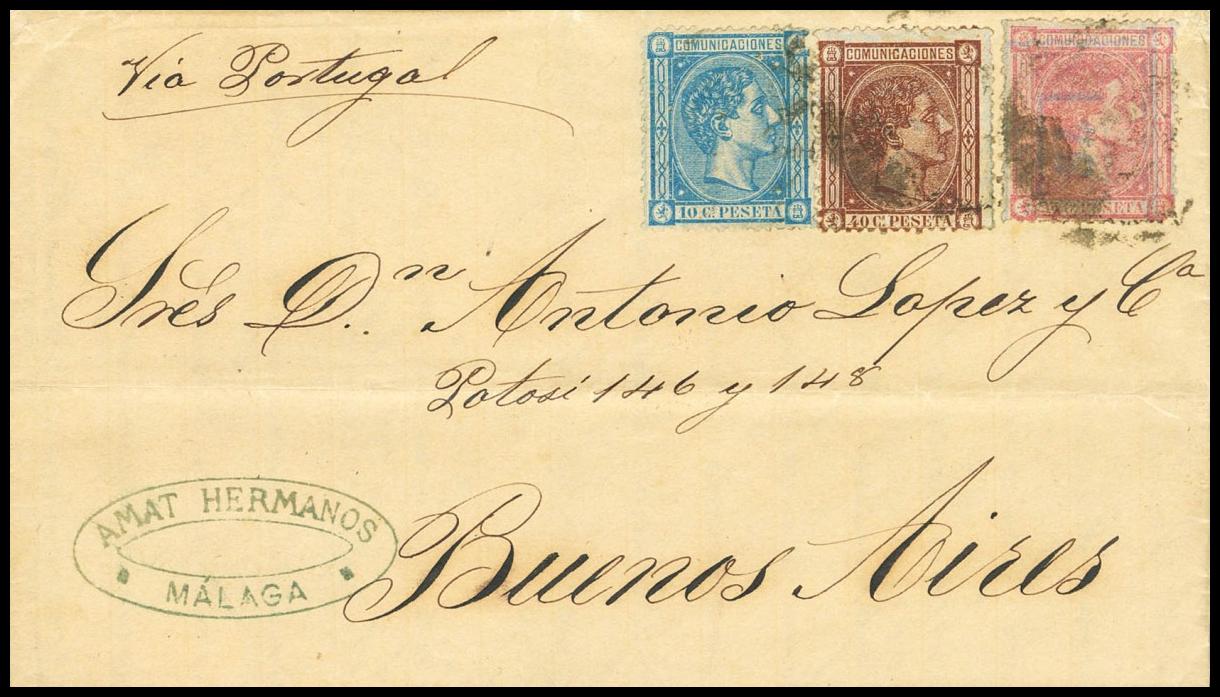 Via Portugal
COMUNICACIONES
10 Cs PESETA
COMUNICACIONES
40 Cs PESETA
COMUNICACIONES
PESETA
Srés D.n Antonio Lopez y Ca
Potosí 146 y 148
Buenos Aires
AMAT HERMANOS
MÁLAGA